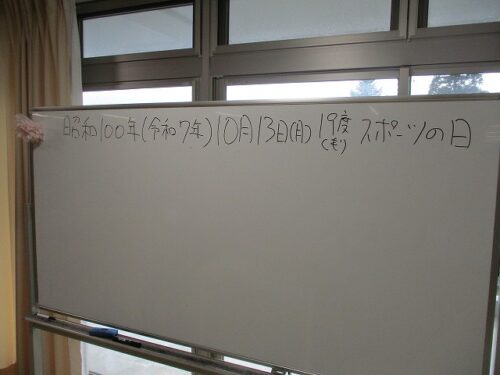 昭和100年(令和7年)10月13日(月)19度 スポーツの日
くもり